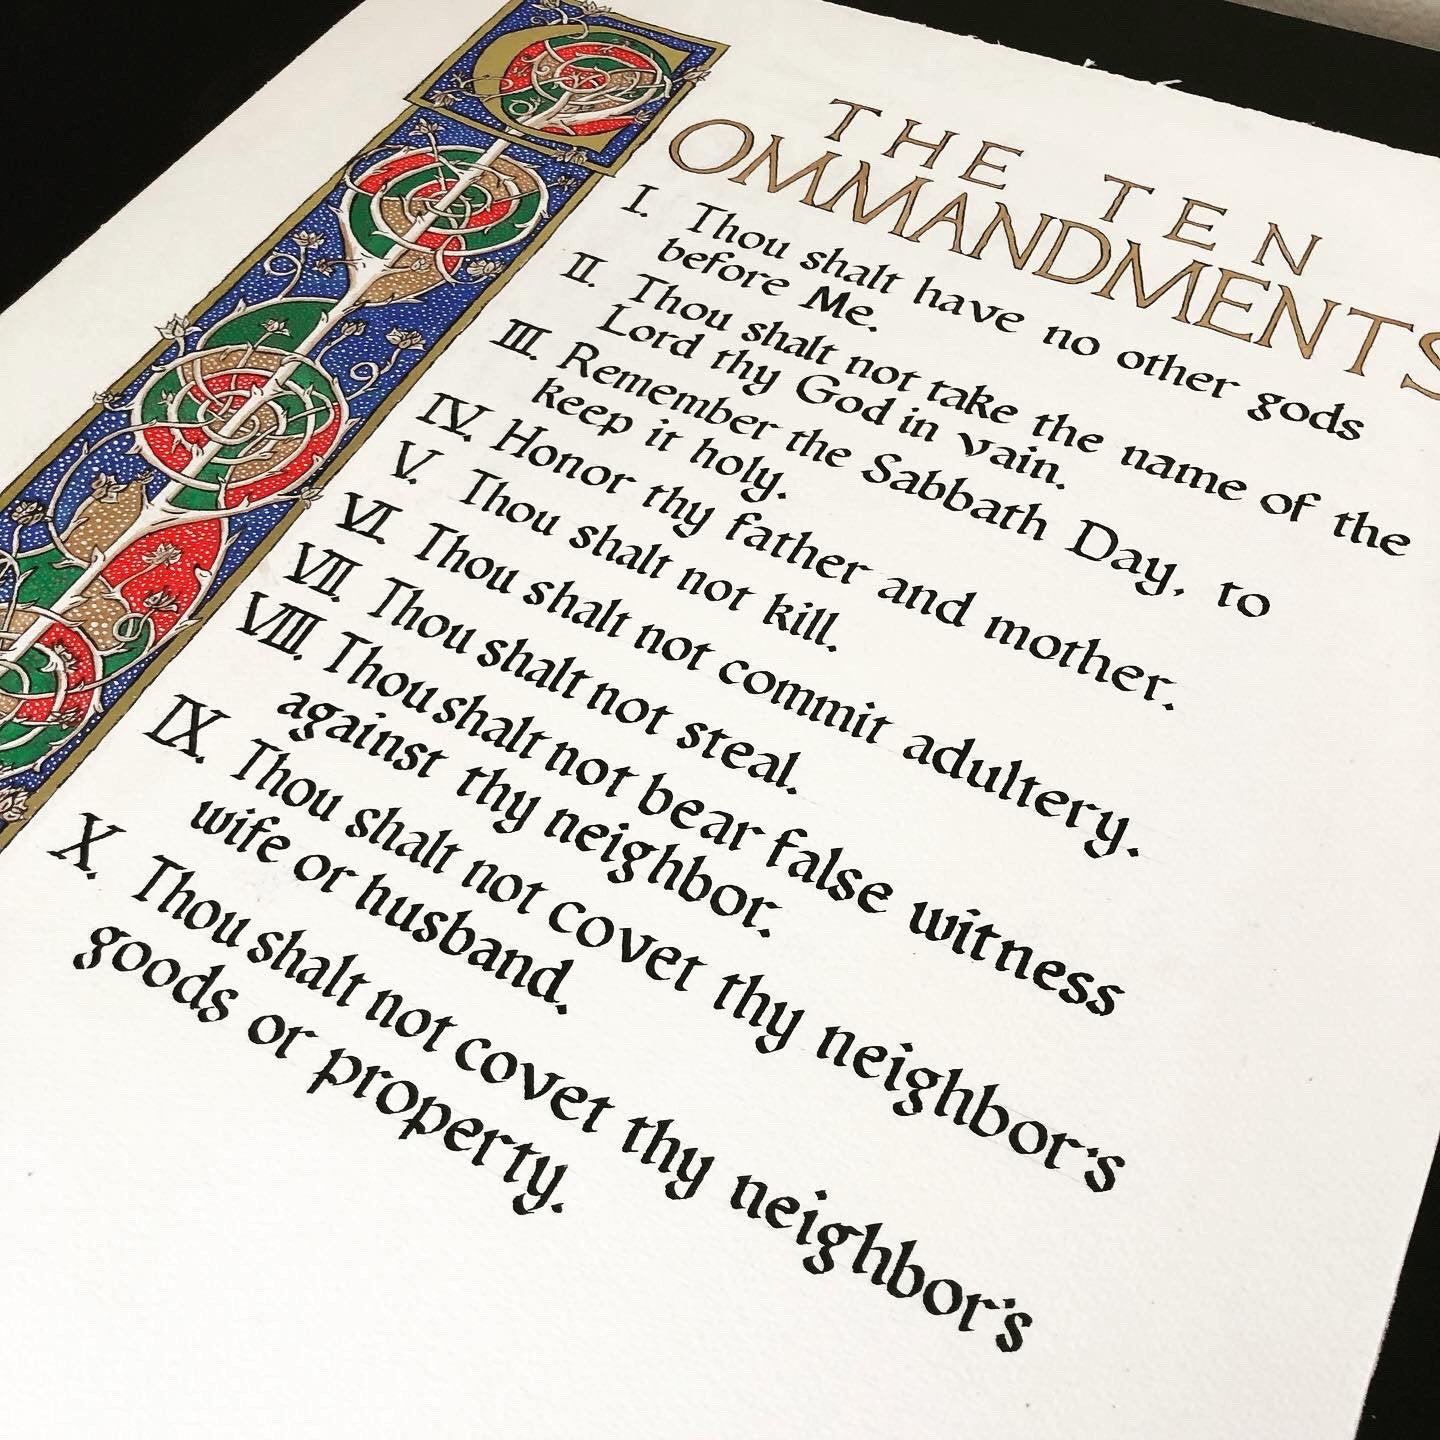 THE TEN
COMMANDMENTS
I. Thou shalt have no other gods
before Me.
II. Thou shalt not take the name of the
Lord thy God in vain.
III. Remember the Sabbath Day, to
keep it holy.
IV. Honor thy father and mother.
V. Thou shalt not kill.
VI. Thou shalt not commit adultery.
VII. Thou shalt not steal.
VIII. Thou shalt not bear false witness
against thy neighbor.
IX. Thou shalt not covet thy neighbor's
wife or husband.
X. Thou shalt not covet thy neighbor's
goods or property.